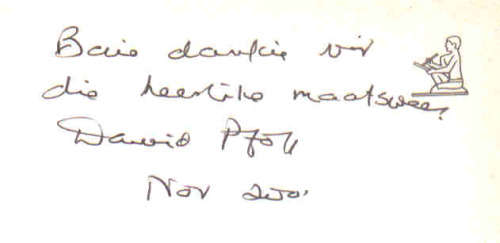 Baie dankie vir
die heerlike maatswees,
Dawid Pfoh
Nov 200.